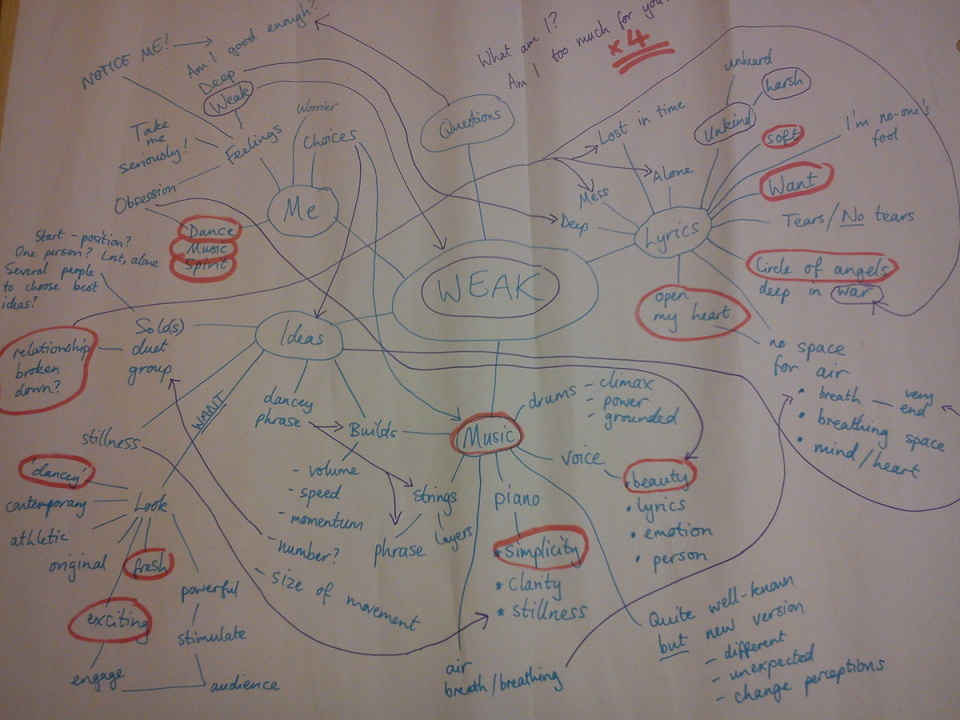 What am I?
Am I too much for you?
x4
NOTICE ME!
Am I good enough?
Deep
Weak
Take
me
seriously!
Feelings
Worrier
Choices
Obsession
Me
Dance
Music
Spirit
Questions
WEAK
unheard
harsh
Unkind
soft
I'm no-one's
fool
Want
Lost in time
Alone
Mess
Deep
Lyrics
Tears/No tears
Circle of angels
deep in war
open
my heart
no space
for air
• breath — very
end
• breathing space
• mind/heart
Start - position?
One person? Lost, alone
Several people
to choose best
ideas?
Solo(s)
duet
group
relationship
broken
down?
Ideas
WANT
stillness
'dancey'
contemporary
athletic
original
fresh
exciting
engage
Look
powerful
stimulate
audience
dancey
phrase
Builds
- volume
- speed
- momentum
- number?
- size of movement
Strings
phrase
layers
Music
drums
- climax
- power
- grounded
voice
• beauty
• lyrics
• emotion
• person
piano
* simplicity
* clarity
* stillness
air
breath/breathing
Quite well-known
but new version
- different
- unexpected
- change perceptions